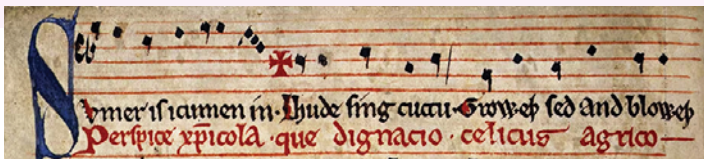 Sumer is icumen in · Lhude sing cuccu · Groweþ sed and bloweþ
Perspice xp̄icola · que dignacio · celicus agrico—